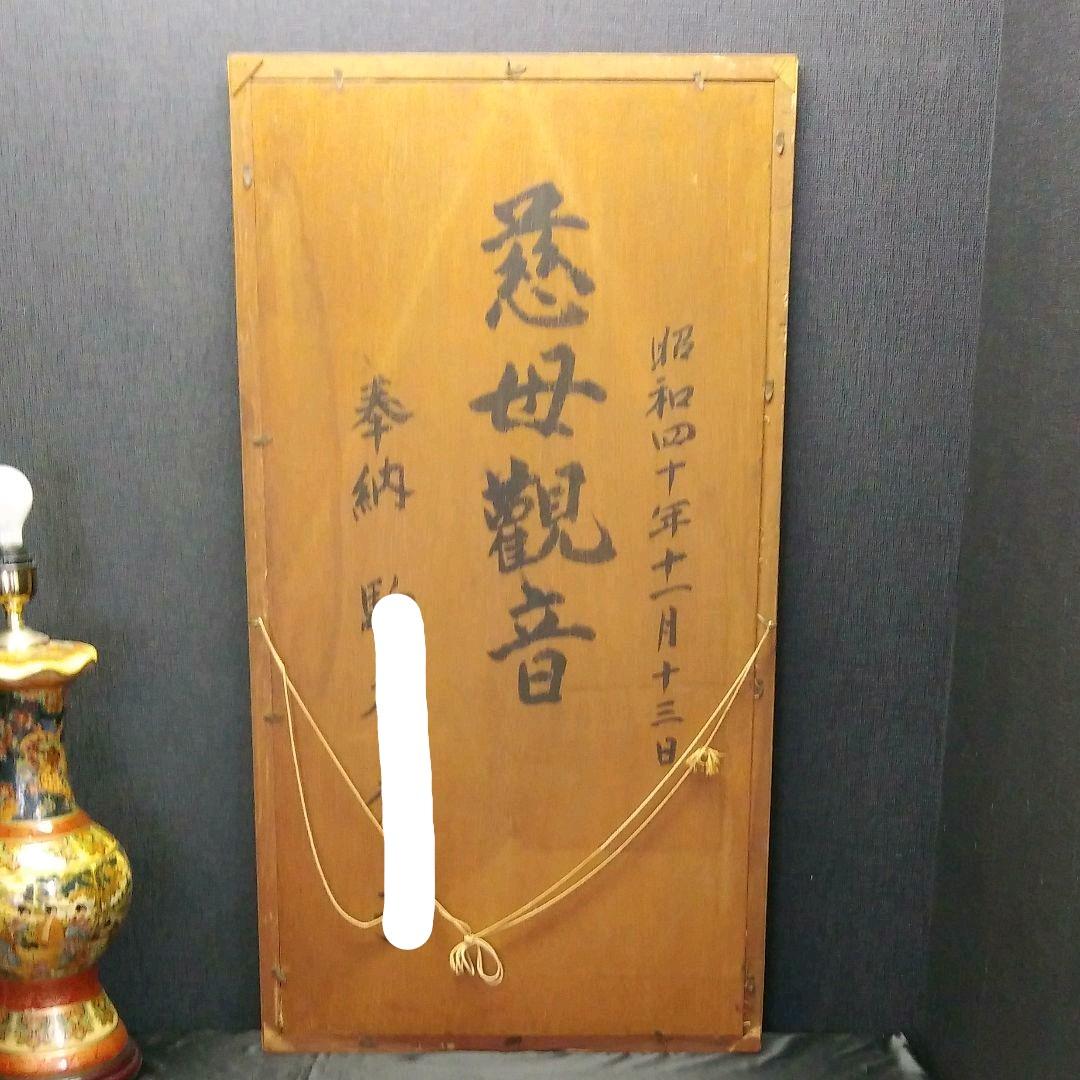 昭和四十年十一月十三日
慈母觀音
奉納